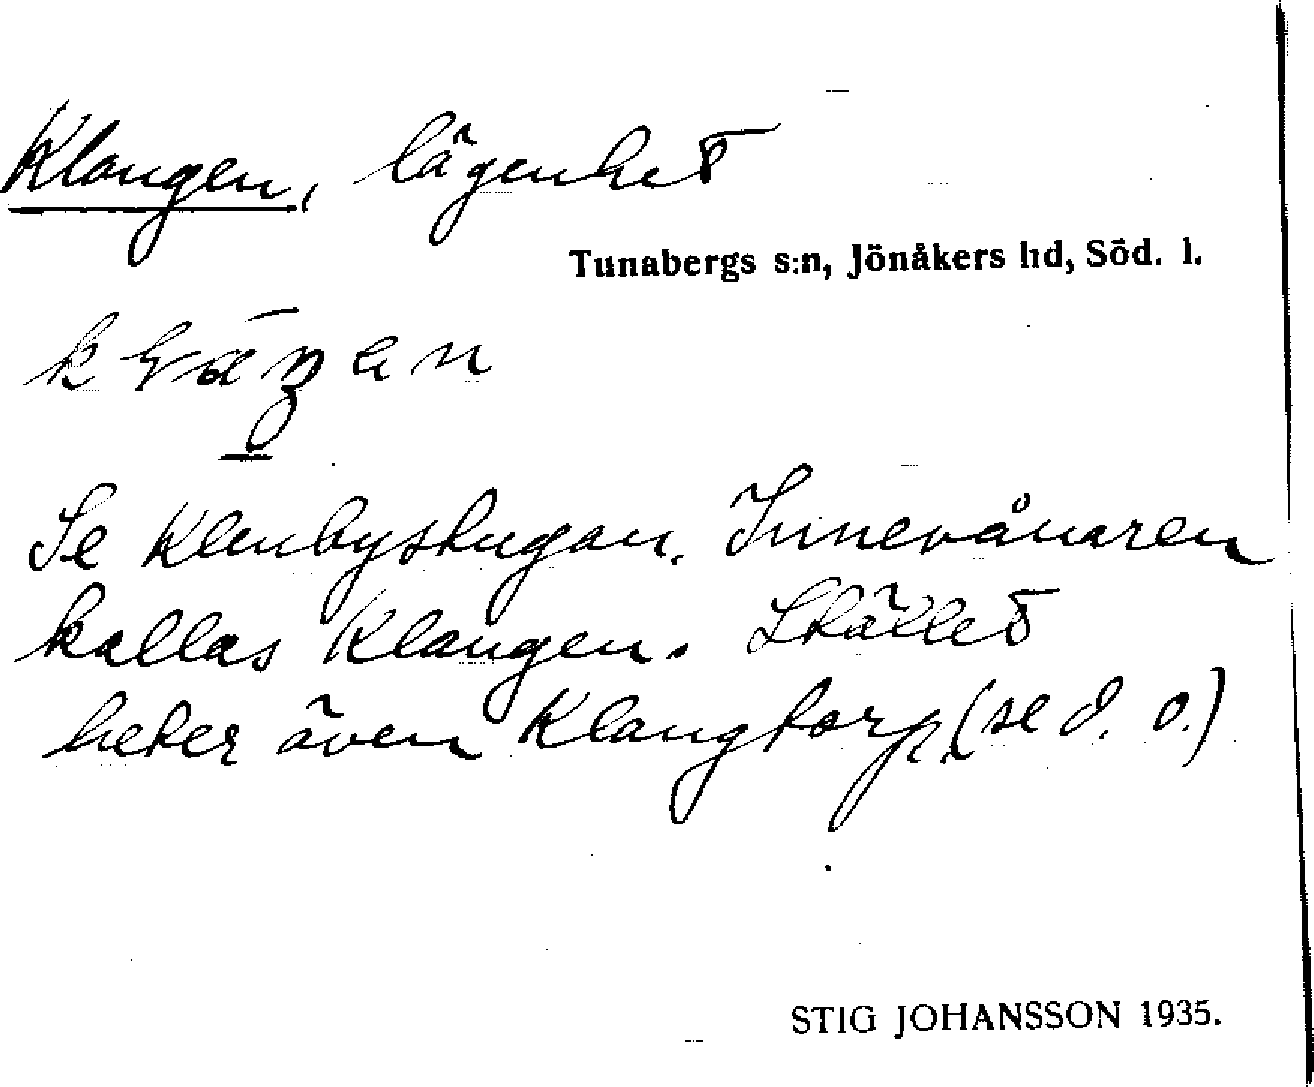 Klangen, lägenhet
Tunabergs s:n, Jönåkers hd, Söd. l.
Se Klenbystugan. Innevånaren
kallas Klangen. Stället
heter även Klangtorp (se d. o.)
STIG JOHANSSON 1935.